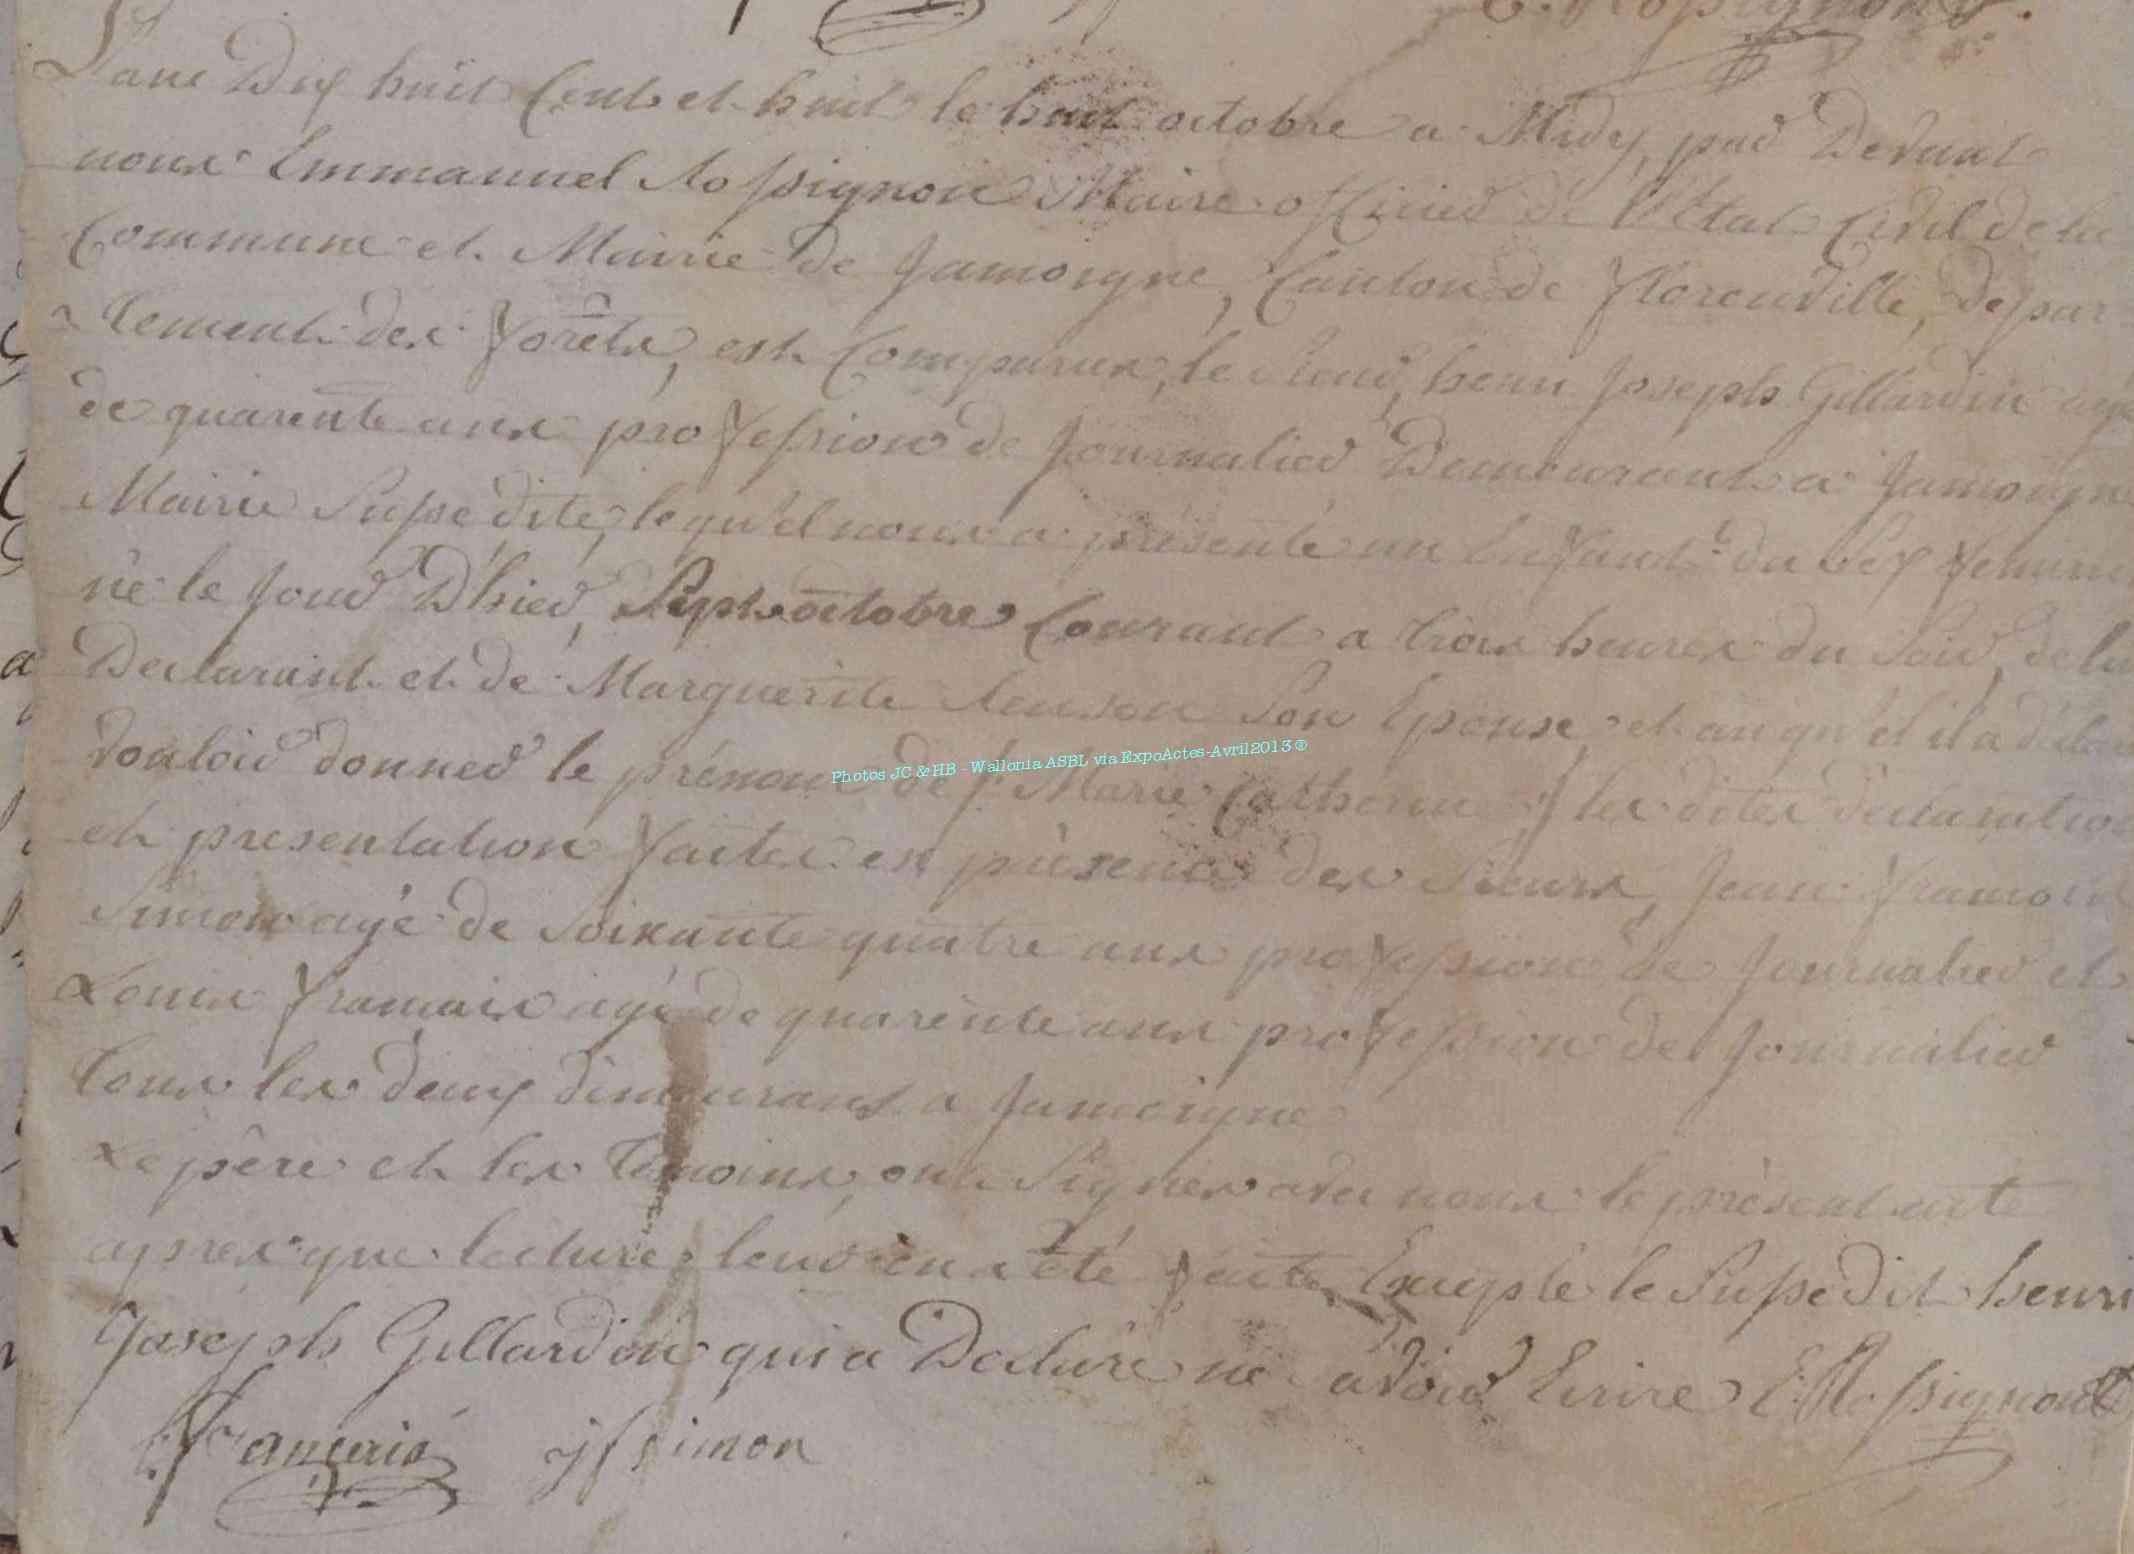 E. Rossignon
L'ane Dix huit Cent et huit le huit octobre a Midy, par Devant
nous Emmanuel Rossignon Maire officier de l'Etat Civil de la
Commune et Mairie de Jamoigne, Canton de florenville, depar-
tement des forêts, est Comparus, le sieur, henri Joseph Gillardin agé
de quarente ans profession de Journalier Demeurant a Jamoigne
Mairie Susedite, lequ'el nous a présenté un Enfant du sex feminin
né le Jour D'hier, Sept octobre Courant a trois heures du soir, de lui
Declarant et de Marguerite son Epouse, et auqu'el il a déclaré
vouloir donner le prénom de Marie Catherine les dites déclaration
et presentation faites en présence des sieurs, Jean françois
Simon agé de soixante quatre ans profession de Journalier et
Louis françois agé de quarente ans profession de Journalier
tous les deux demeurans a Jamoigne
Le père et les témoins, ont signés avec nous le présent acte
apres que lecture leur en a été faite Excepté le Susedit henri
Joseph Gillardin qui a Declaré ne savoir Ecrire E. Rossignon
françois jf simon
Photos JC & HB - Wallonia ASBL via ExpoActes-Avril2013 ®